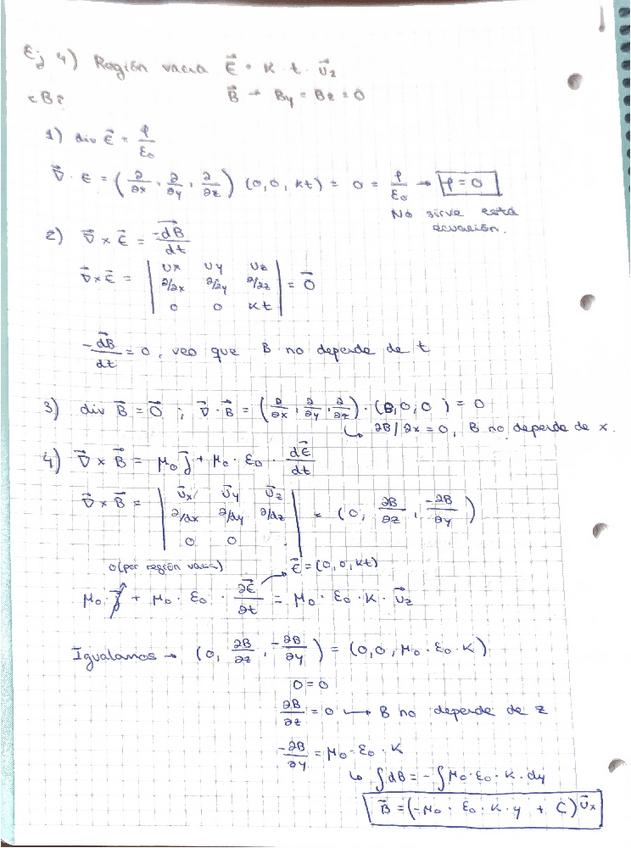 Ej 4) Región vacía E⃗ = K · t · U⃗z
¿B? B⃗ → By = Bz = 0
1) div E⃗ = ρ/ε0
∇⃗ · E = (∂/∂x, ∂/∂y, ∂/∂z) (0, 0, Kt) = 0 = ρ/ε0 → ρ = 0
No sirve esta
ecuación.
2) ∇⃗ x E⃗ = -dB⃗/dt
∇⃗ x E⃗ = | Ux Uy Uz | = 0⃗
∂/∂x ∂/∂y ∂/∂z
0 0 Kt
-dB⃗/dt = 0, veo que B no depende de t
3) div B⃗ = 0⃗ ; ∇⃗ · B⃗ = (∂/∂x, ∂/∂y, ∂/∂z) · (B, 0, 0) = 0
↳ ∂B/∂x = 0, B no depende de x.
4) ∇⃗ x B⃗ = μ0 j⃗ + μ0 · ε0 · dE⃗/dt
∇⃗ x B⃗ = | U⃗x U⃗y U⃗z | = (0, ∂B/∂z, -∂B/∂y)
∂/∂x ∂/∂y ∂/∂z
0 0
0 (por región vacía) E⃗ = (0, 0, Kt)
μ0 · j⃗ + μ0 · ε0 · ∂E⃗/∂t = μ0 · ε0 · K · U⃗z
Igualamos → (0, ∂B/∂z, -∂B/∂y) = (0, 0, μ0 · ε0 · K)
0 = 0
∂B/∂z = 0 → B no depende de z
-∂B/∂y = μ0 · ε0 · K
↳ ∫dB = -∫μ0 · ε0 · K · dy
B⃗ = (-μ0 · ε0 · K · y + C) U⃗x